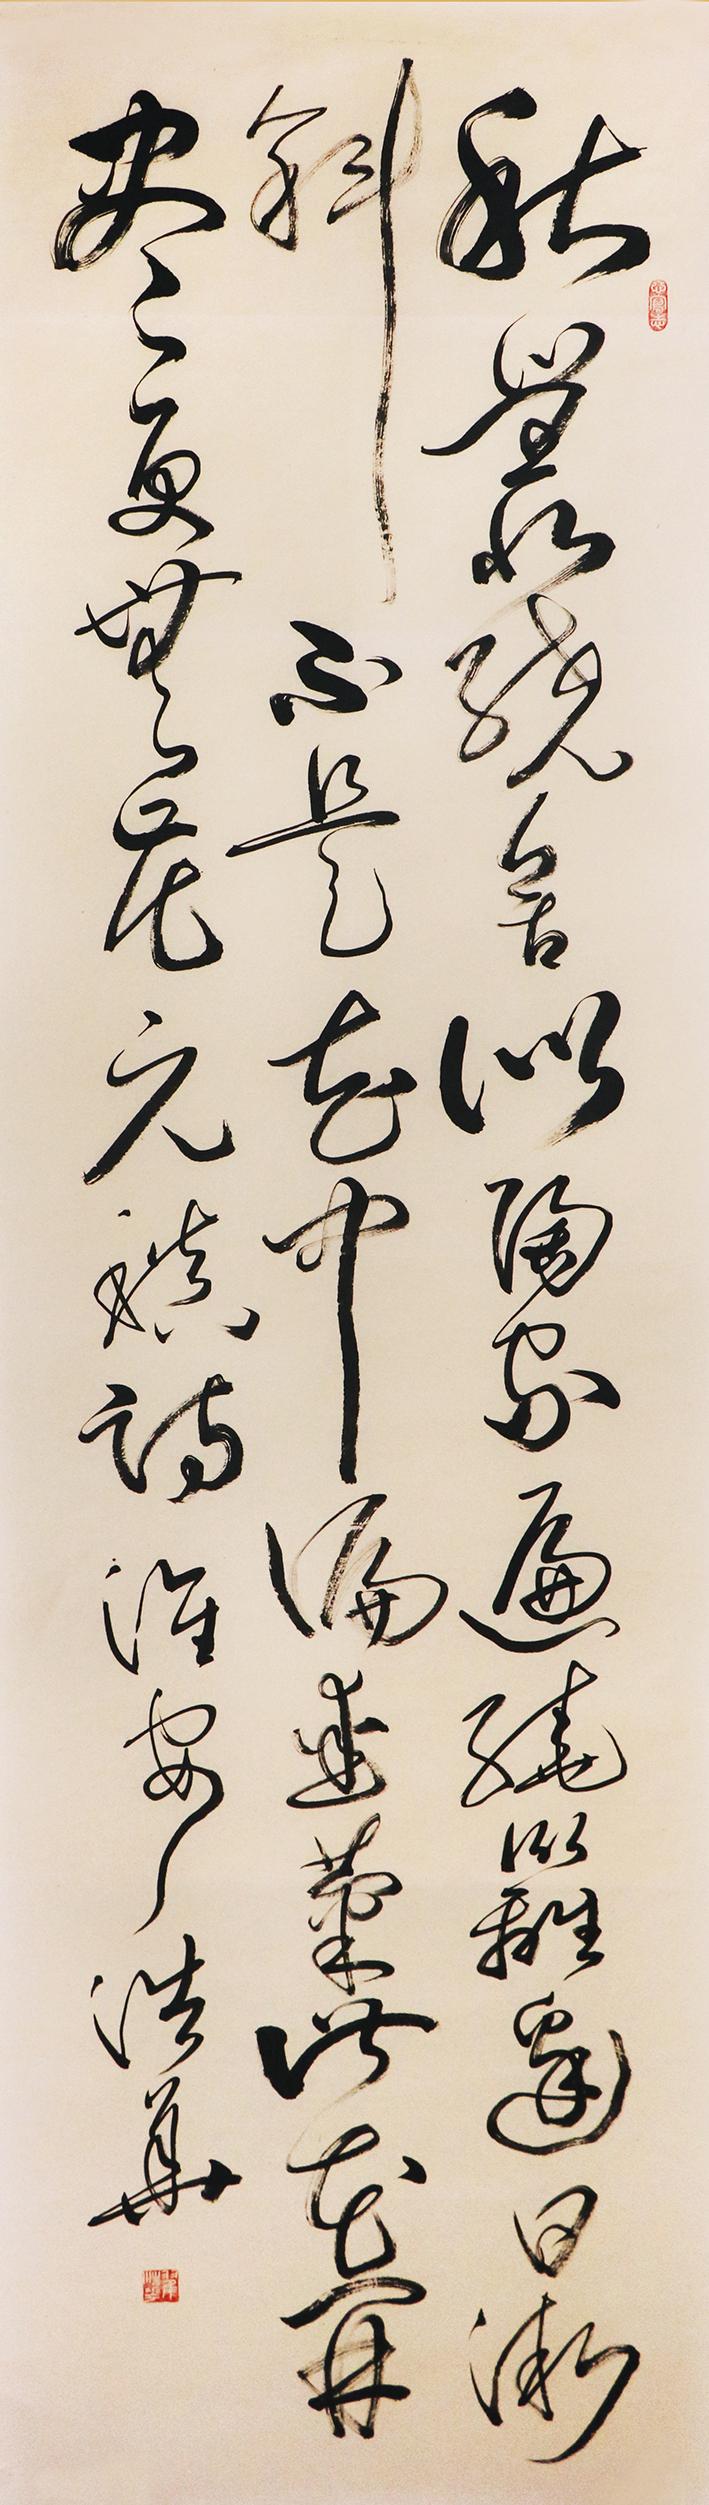 秋叢繞舍似陶家遍繞籬邊日漸
斜不是花中偏愛菊此花開
盡更無花元稹詩淮安浩華